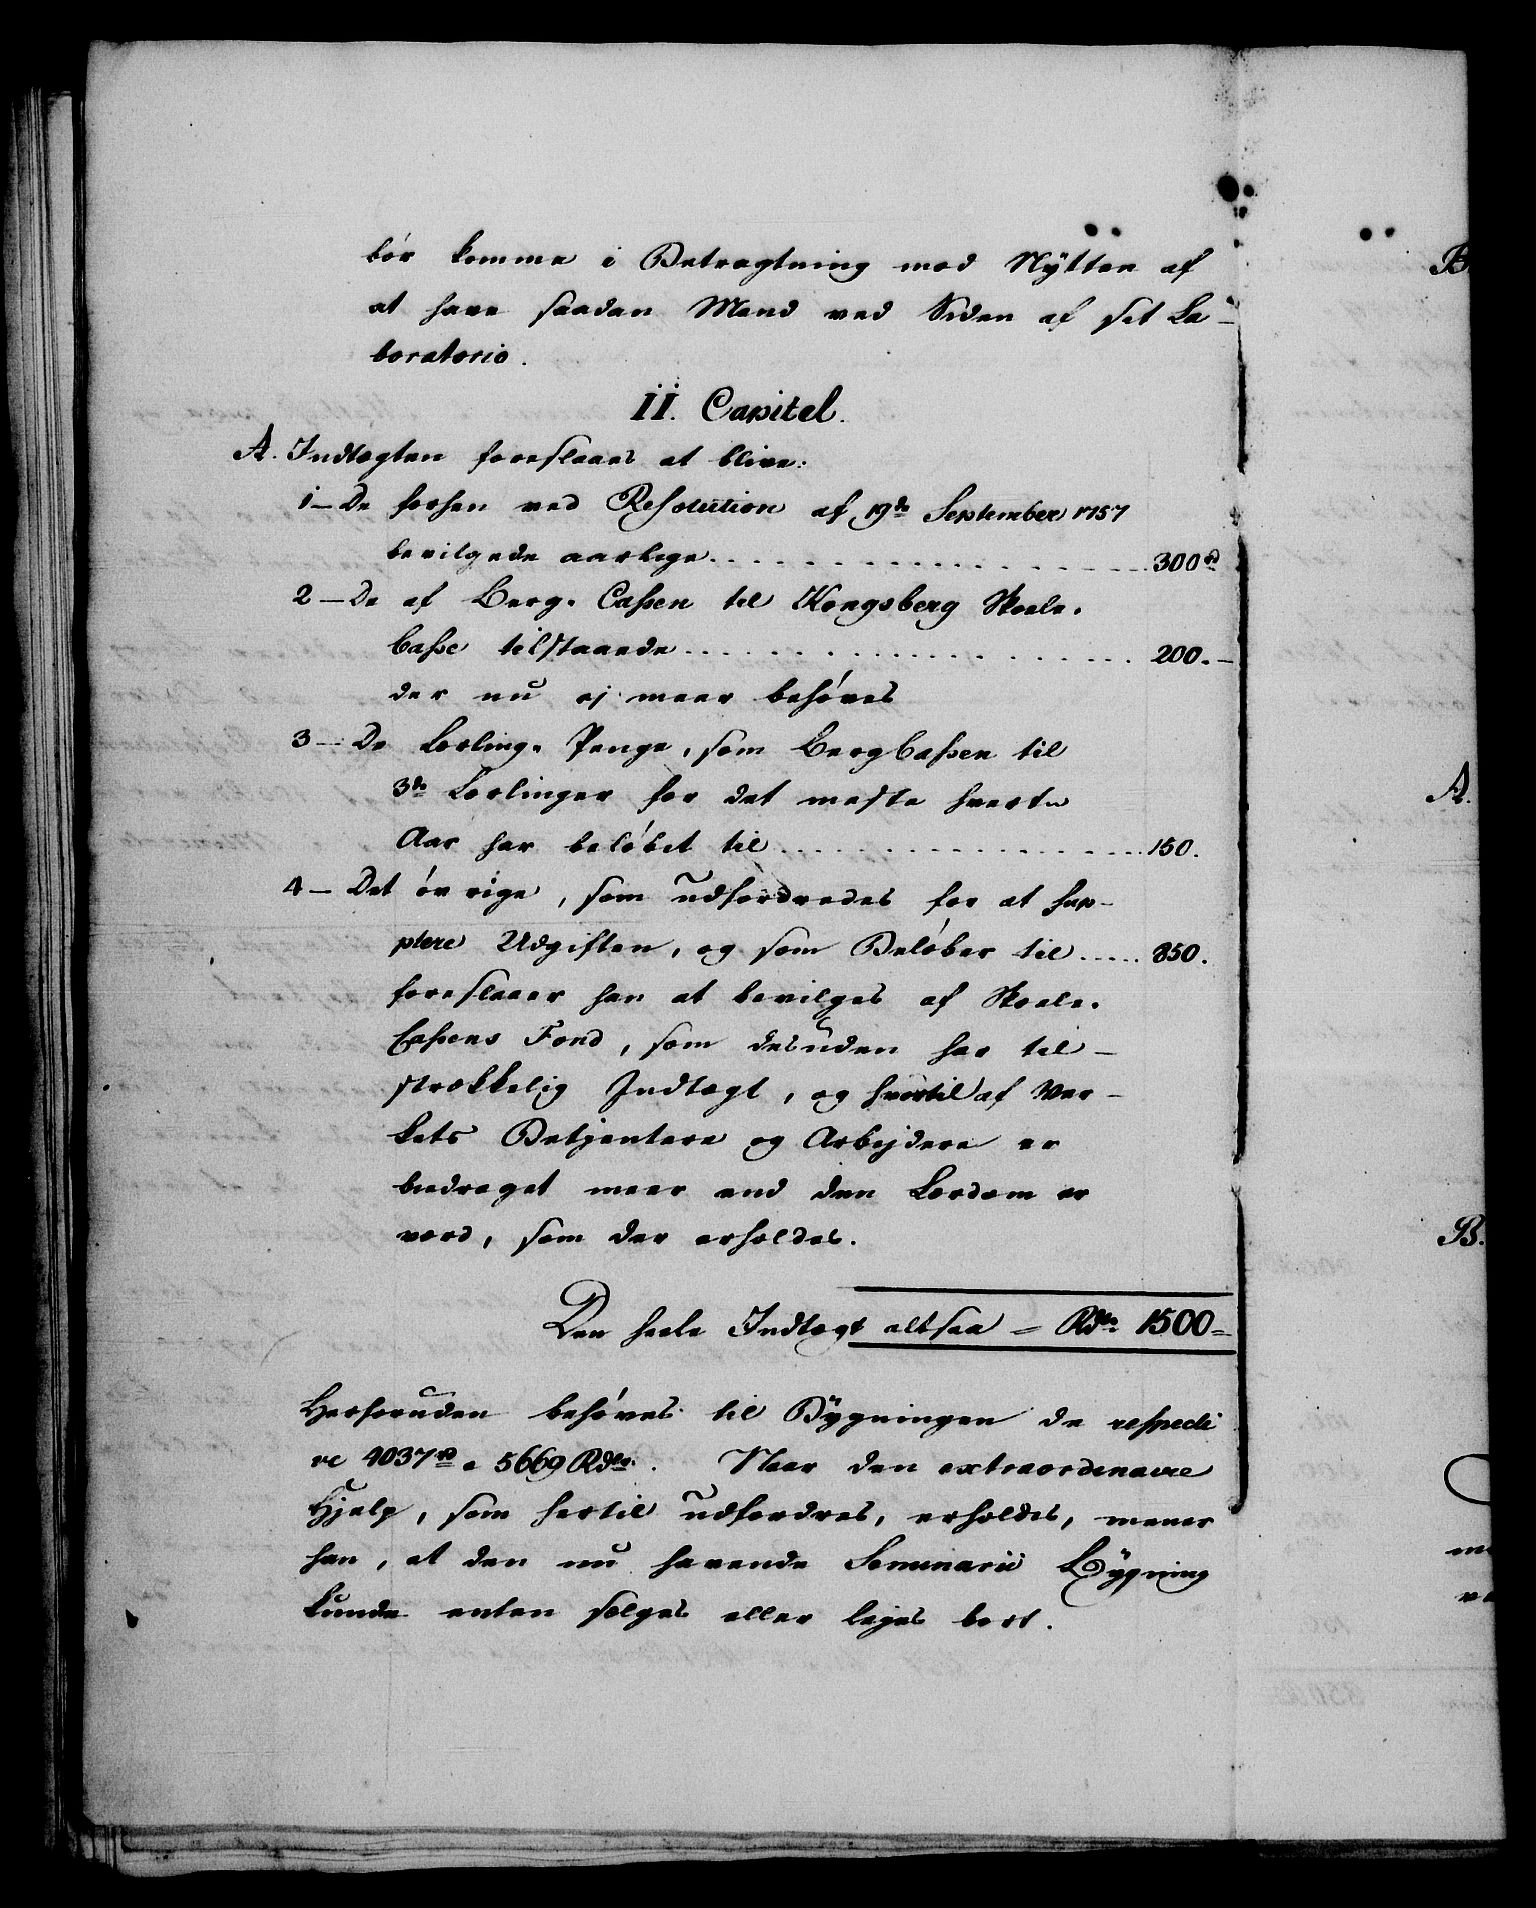 bör komme i Betragtning mod Nÿtten af
at have saadan Mand ved Siden af sit La-
boratorio.
II. Capitel.
A. Indtægten foreslaaes at blive:
1 - De forhen ved Resolution af 19de September 1757
bevilgede aarlige . . . . . . . . . . . . . . . 300 rd
2 - De af Berg-Cassen til Kongsberg Skoele-
Casse tilstaaede . . . . . . . . . . . . . . . 200. -
der nu ej meer behöves
3 - De Lærling-Penge, som BergCassen til
3de Lærlinger for det meste hvert
Aar har belöbet til . . . . . . . . . . . . . . . 150.
4 - Det övrige, som udfordredes for at sup-
plere Udgiften, og som Belöber til . . . . . 850.
foreslaaer han at bevilges af Skoele-
Cassens Fond, som desuden har til-
strækkelig Indtægt, og hvortil af Ver-
kets Betjentere og Arbejdere er
bedraget meer end den Lærdom er
værd, som der erholdes.
Den heele Indtægt altsaa = Rdlr 1500 =
Herforuden behöves til Bÿgningen de respecti
ve 4037 rd a 5669 Rdlr. Naar den extraordinaire
Hjelp, som hertil udfordres, erholdes, mener
han, at den nu havende Seminarii Bÿgning
kunde enten sælges eller lejes bort.
B
A.
B.